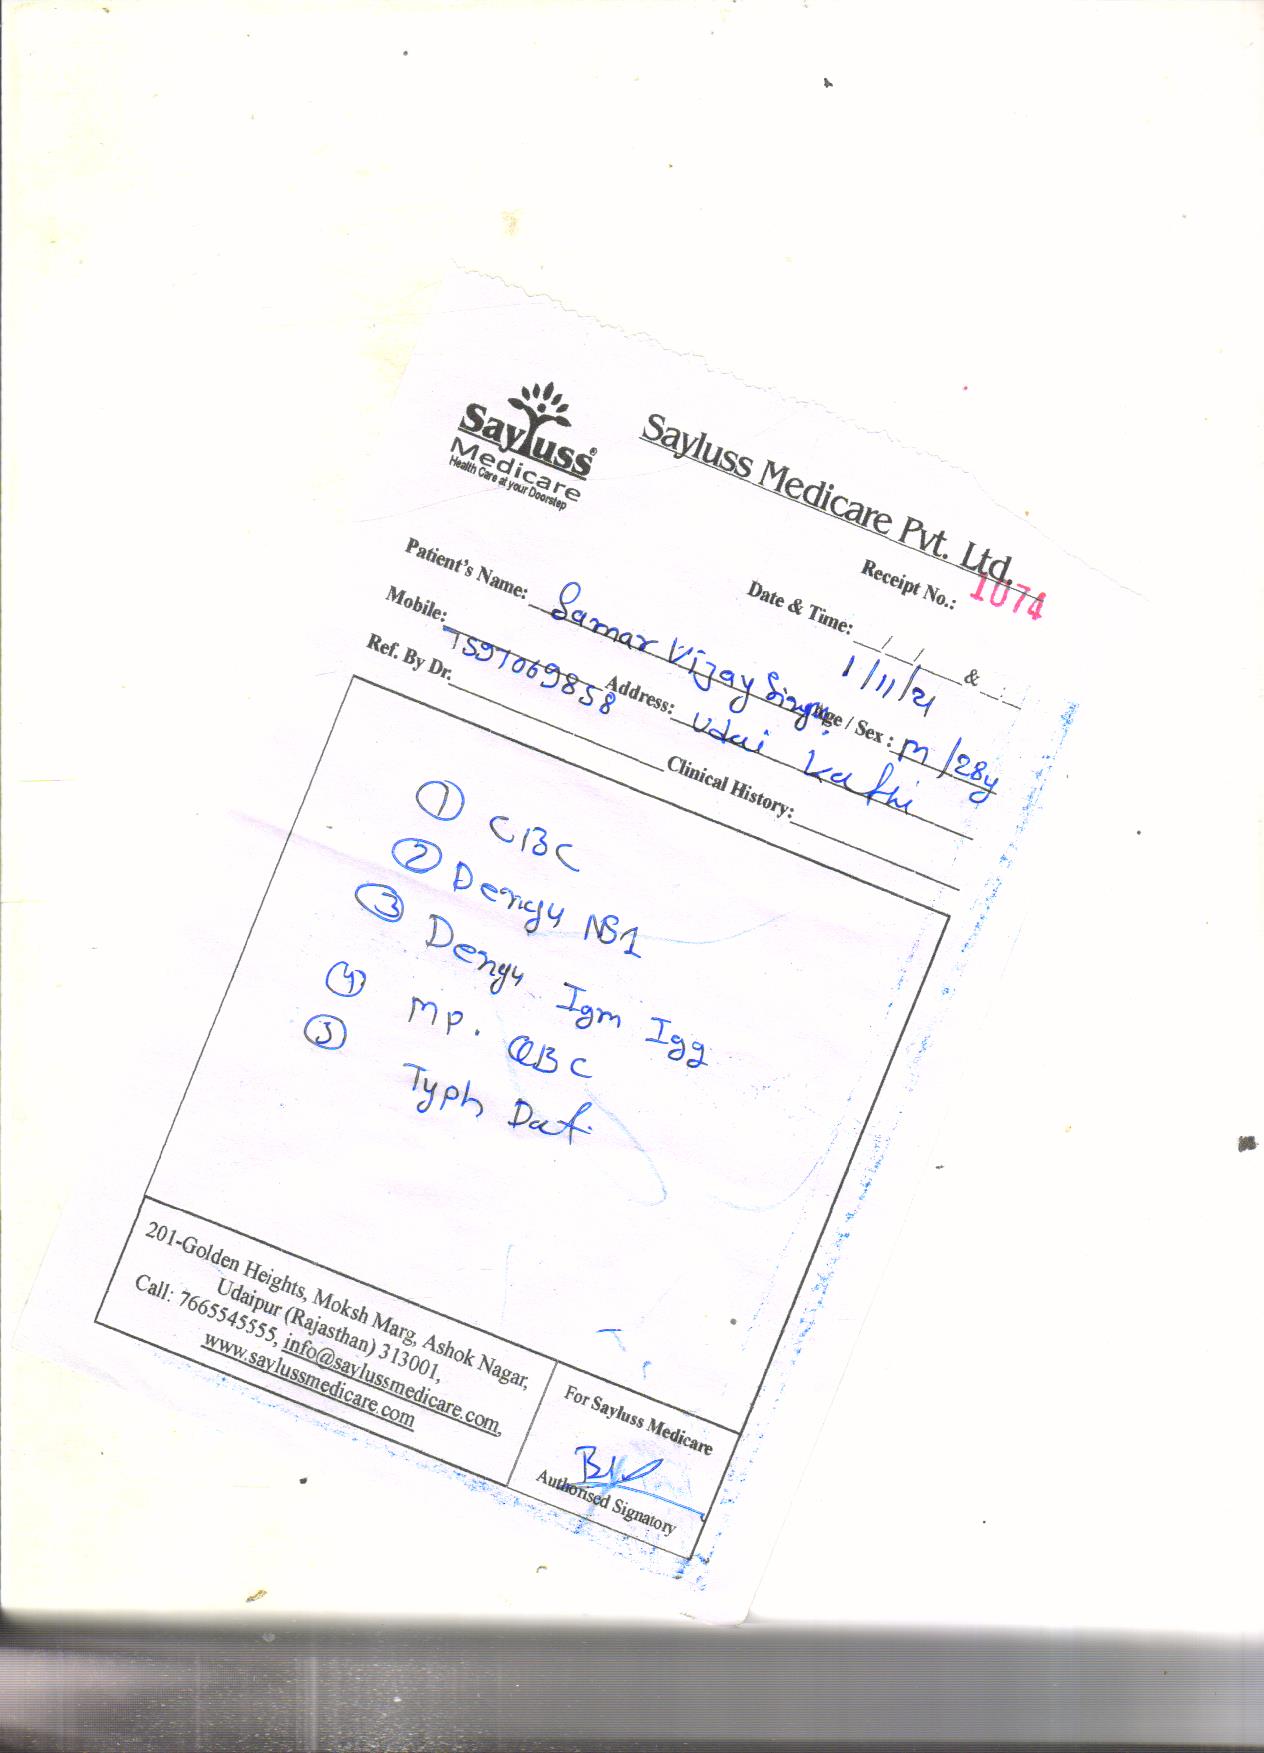 Sayluss®
Medicare
Health Care at your Doorstep
Sayluss Medicare Pvt. Ltd.
Receipt No.: 1074
Date & Time: 1/11/21 &
Patient's Name: Samar Vijay Singh Age / Sex : M /28y
Mobile: 7597069858 Address: Udai
Ref. By Dr. Clinical History:
1 CBC
2 Dengu NS1
3 Dengu Igm Igg
4 MP. QBC
5 Typh Dot
201-Golden Heights, Moksh Marg, Ashok Nagar,
Udaipur (Rajasthan) 313001,
Call: 7665545555, info@saylussmedicare.com,
www.saylussmedicare.com
For Sayluss Medicare
Authorised Signatory